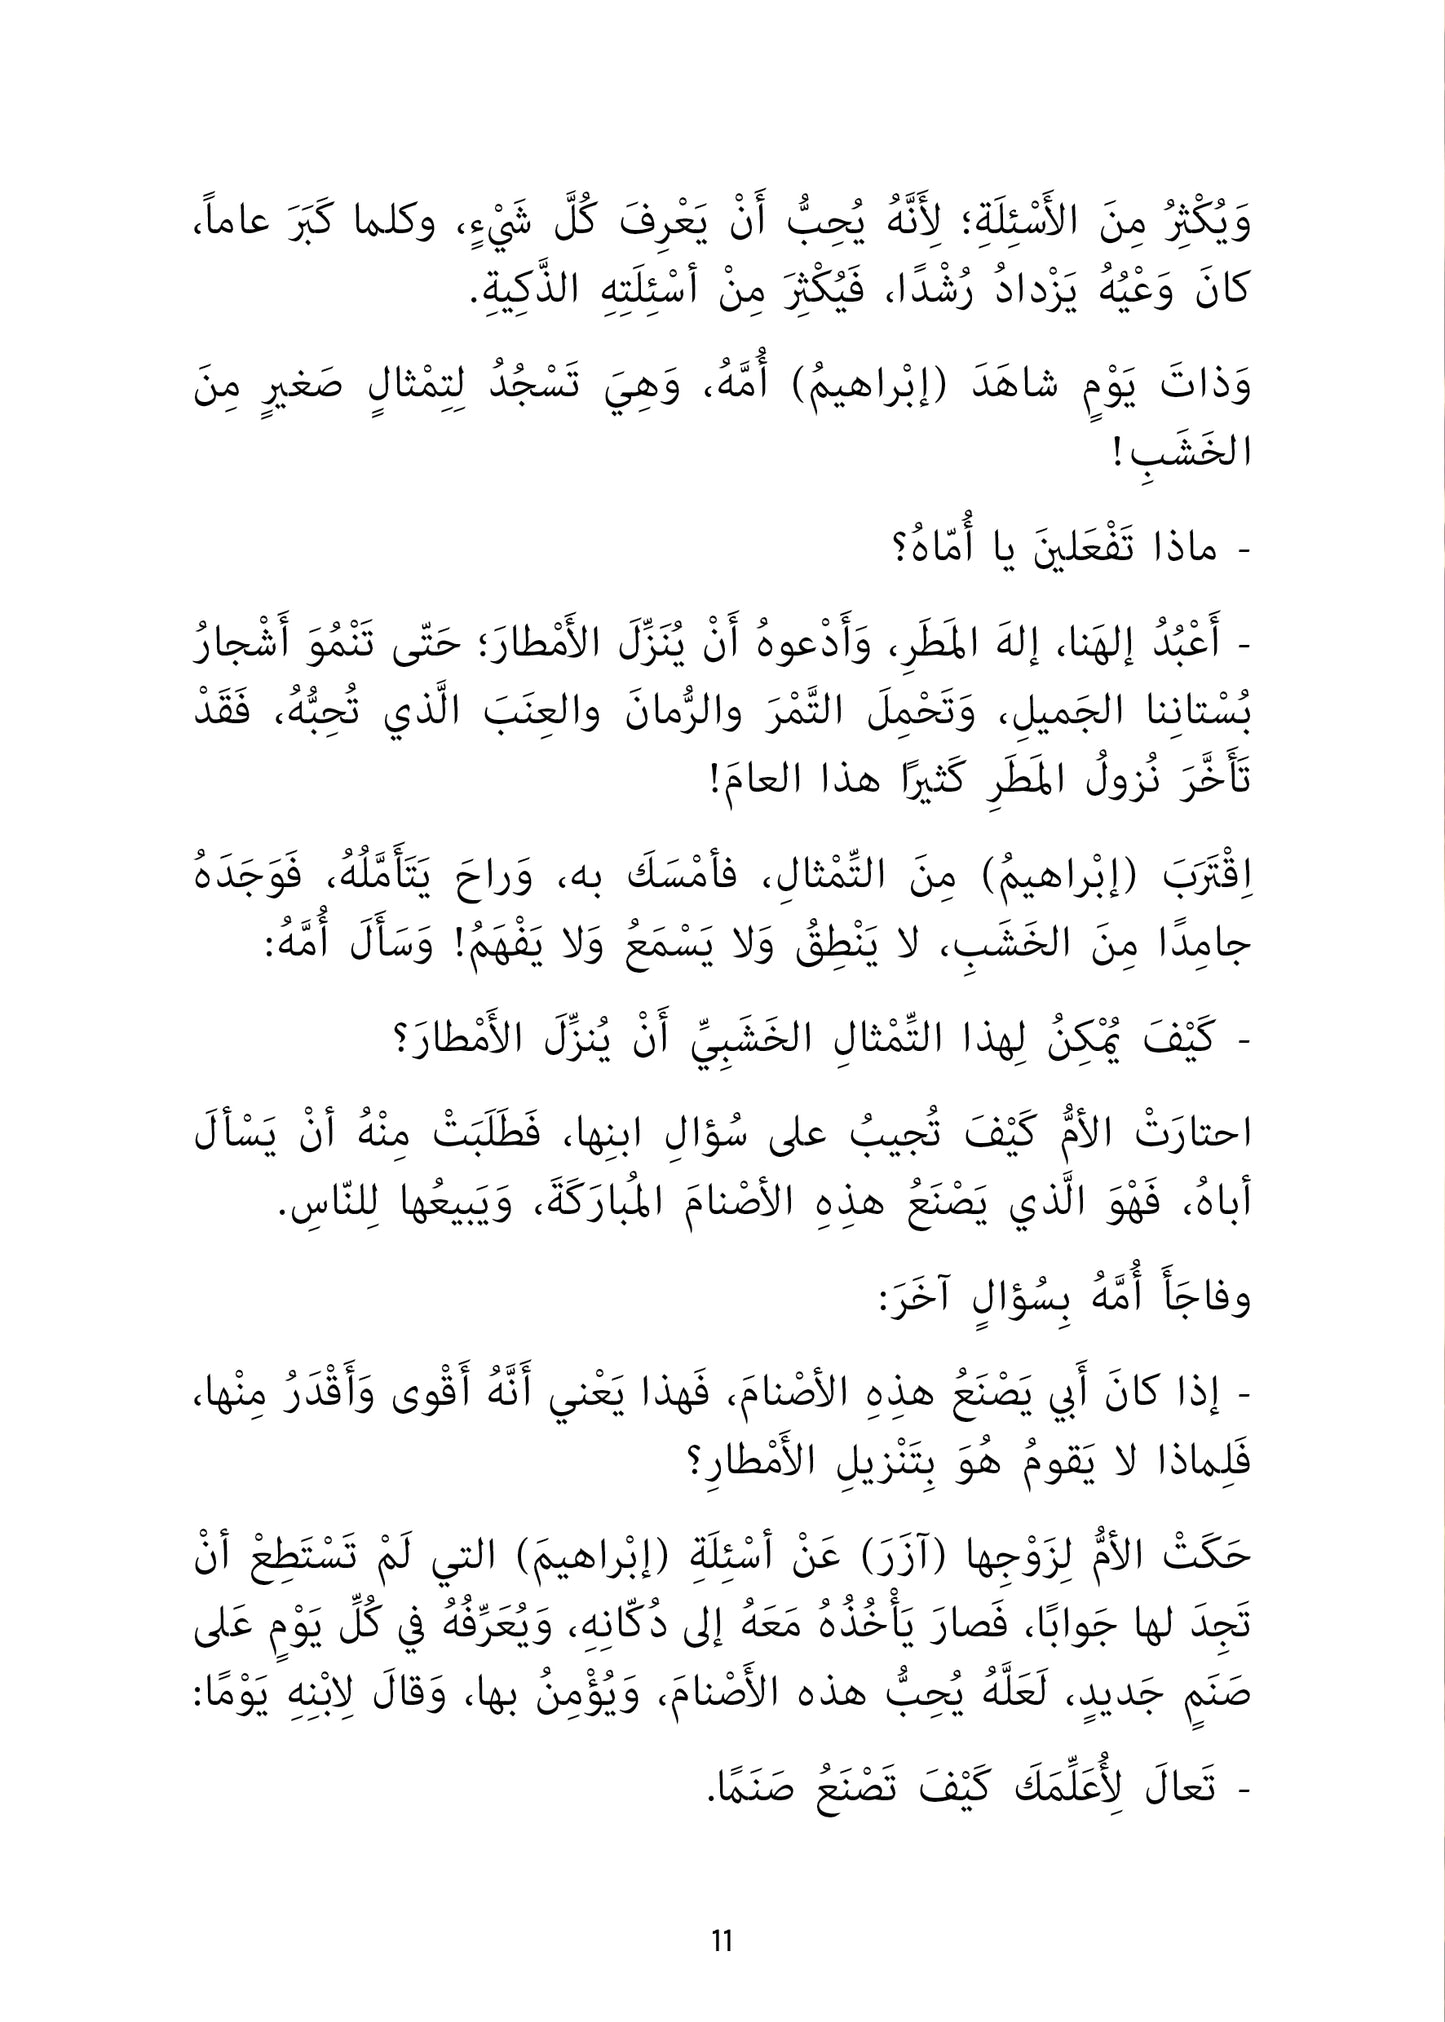 وَيُكْثِرُ مِنَ الأَسْئِلَةِ؛ لِأَنَّهُ يُحِبُّ أَنْ يَعْرِفَ كُلَّ شَيْءٍ، وكلما كَبَرَ عاماً،
كانَ وَعْيُهُ يَزْدادُ رُشْدًا، فَيُكْثِرَ مِنْ أسْئِلَتِهِ الذَّكِيةِ.
وَذاتَ يَوْمٍ شاهَدَ (إبْراهيمُ) أُمَّهُ، وَهِيَ تَسْجُدُ لِتِمْثالٍ صَغيرٍ مِنَ
الخَشَبِ!
- ماذا تَفْعَلينَ يا أُمّاهُ؟
- أَعْبُدُ إلهَنا، إلهَ المَطَرِ، وَأَدْعوهُ أَنْ يُنَزِّلَ الأَمْطارَ؛ حَتّى تَنْمُوَ أَشْجارُ
بُسْتانِنا الجَميلِ، وَتَحْمِلَ التَّمْرَ والرُّمانَ والعِنَبَ الَّذي تُحِبُّهُ، فَقَدْ
تَأَخَّرَ نُزولُ المَطَرِ كَثيرًا هذا العامَ!
اِقْتَرَبَ (إبْراهيمُ) مِنَ التِّمْثالِ، فأمْسَكَ به، وَراحَ يَتَأَمَّلُهُ، فَوَجَدَهُ
جامِدًا مِنَ الخَشَبِ، لا يَنْطِقُ وَلا يَسْمَعُ وَلا يَفْهَمُ! وَسَأَلَ أُمَّهُ:
- كَيْفَ يُمْكِنُ لِهذا التِّمْثالِ الخَشَبِيِّ أَنْ يُنزِّلَ الأَمْطارَ؟
احتارَتْ الأمُّ كَيْفَ تُجيبُ على سُؤالِ ابنِها، فَطَلَبَتْ مِنْهُ أنْ يَسْألَ
أباهُ، فَهْوَ الَّذي يَصْنَعُ هذِهِ الأصْنامَ المُبارَكَةَ، وَيَبيعُها لِلنّاسِ.
وفاجَأَ أُمَّهُ بِسُؤالٍ آخَرَ:
- إذا كانَ أَبي يَصْنَعُ هذِهِ الأصْنامَ، فَهذا يَعْني أَنَّهُ أَقْوى وَأَقْدَرُ مِنْها،
فَلِماذا لا يَقومُ هُوَ بِتَنْزيلِ الأَمْطارِ؟
حَكَتْ الأمُّ لِزَوْجِها (آزَرَ) عَنْ أسْئِلَةِ (إبْراهيمَ) التي لَمْ تَسْتَطِعْ أنْ
تَجِدَ لها جَوابًا، فَصارَ يَأْخُذُهُ مَعَهُ إلى دُكّانِهِ، وَيُعَرِّفُهُ في كُلِّ يَوْمٍ عَلى
صَنَمٍ جَديدٍ، لَعَلَّهُ يُحِبُّ هذه الأَصْنامَ، وَيُؤْمِنُ بها، وَقالَ لِابْنِهِ يَوْمًا:
- تَعالَ لِأُعَلِّمَكَ كَيْفَ تَصْنَعُ صَنَمًا.
11